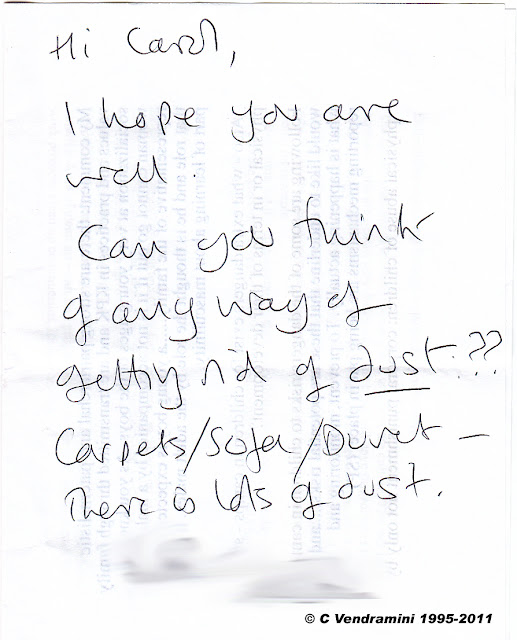 Hi Carol,
I hope you are
well.
Can you think
of any way of
getting rid of dust??
Carpets/Sofa/Duvet –
There is lots of dust.
© C Vendramini 1995-2011